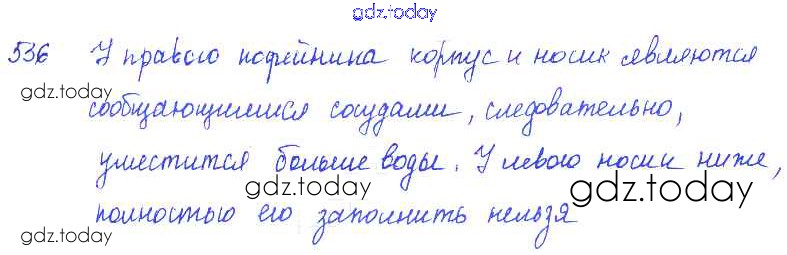 gdz.today
536 У правого кофейника корпус и носик являются
gdz.today
сообщающимися сосудами, следовательно,
уместится больше воды. У левого носик ниже,
gdz.today gdz.today
полностью его заполнить нельзя
gdz.today